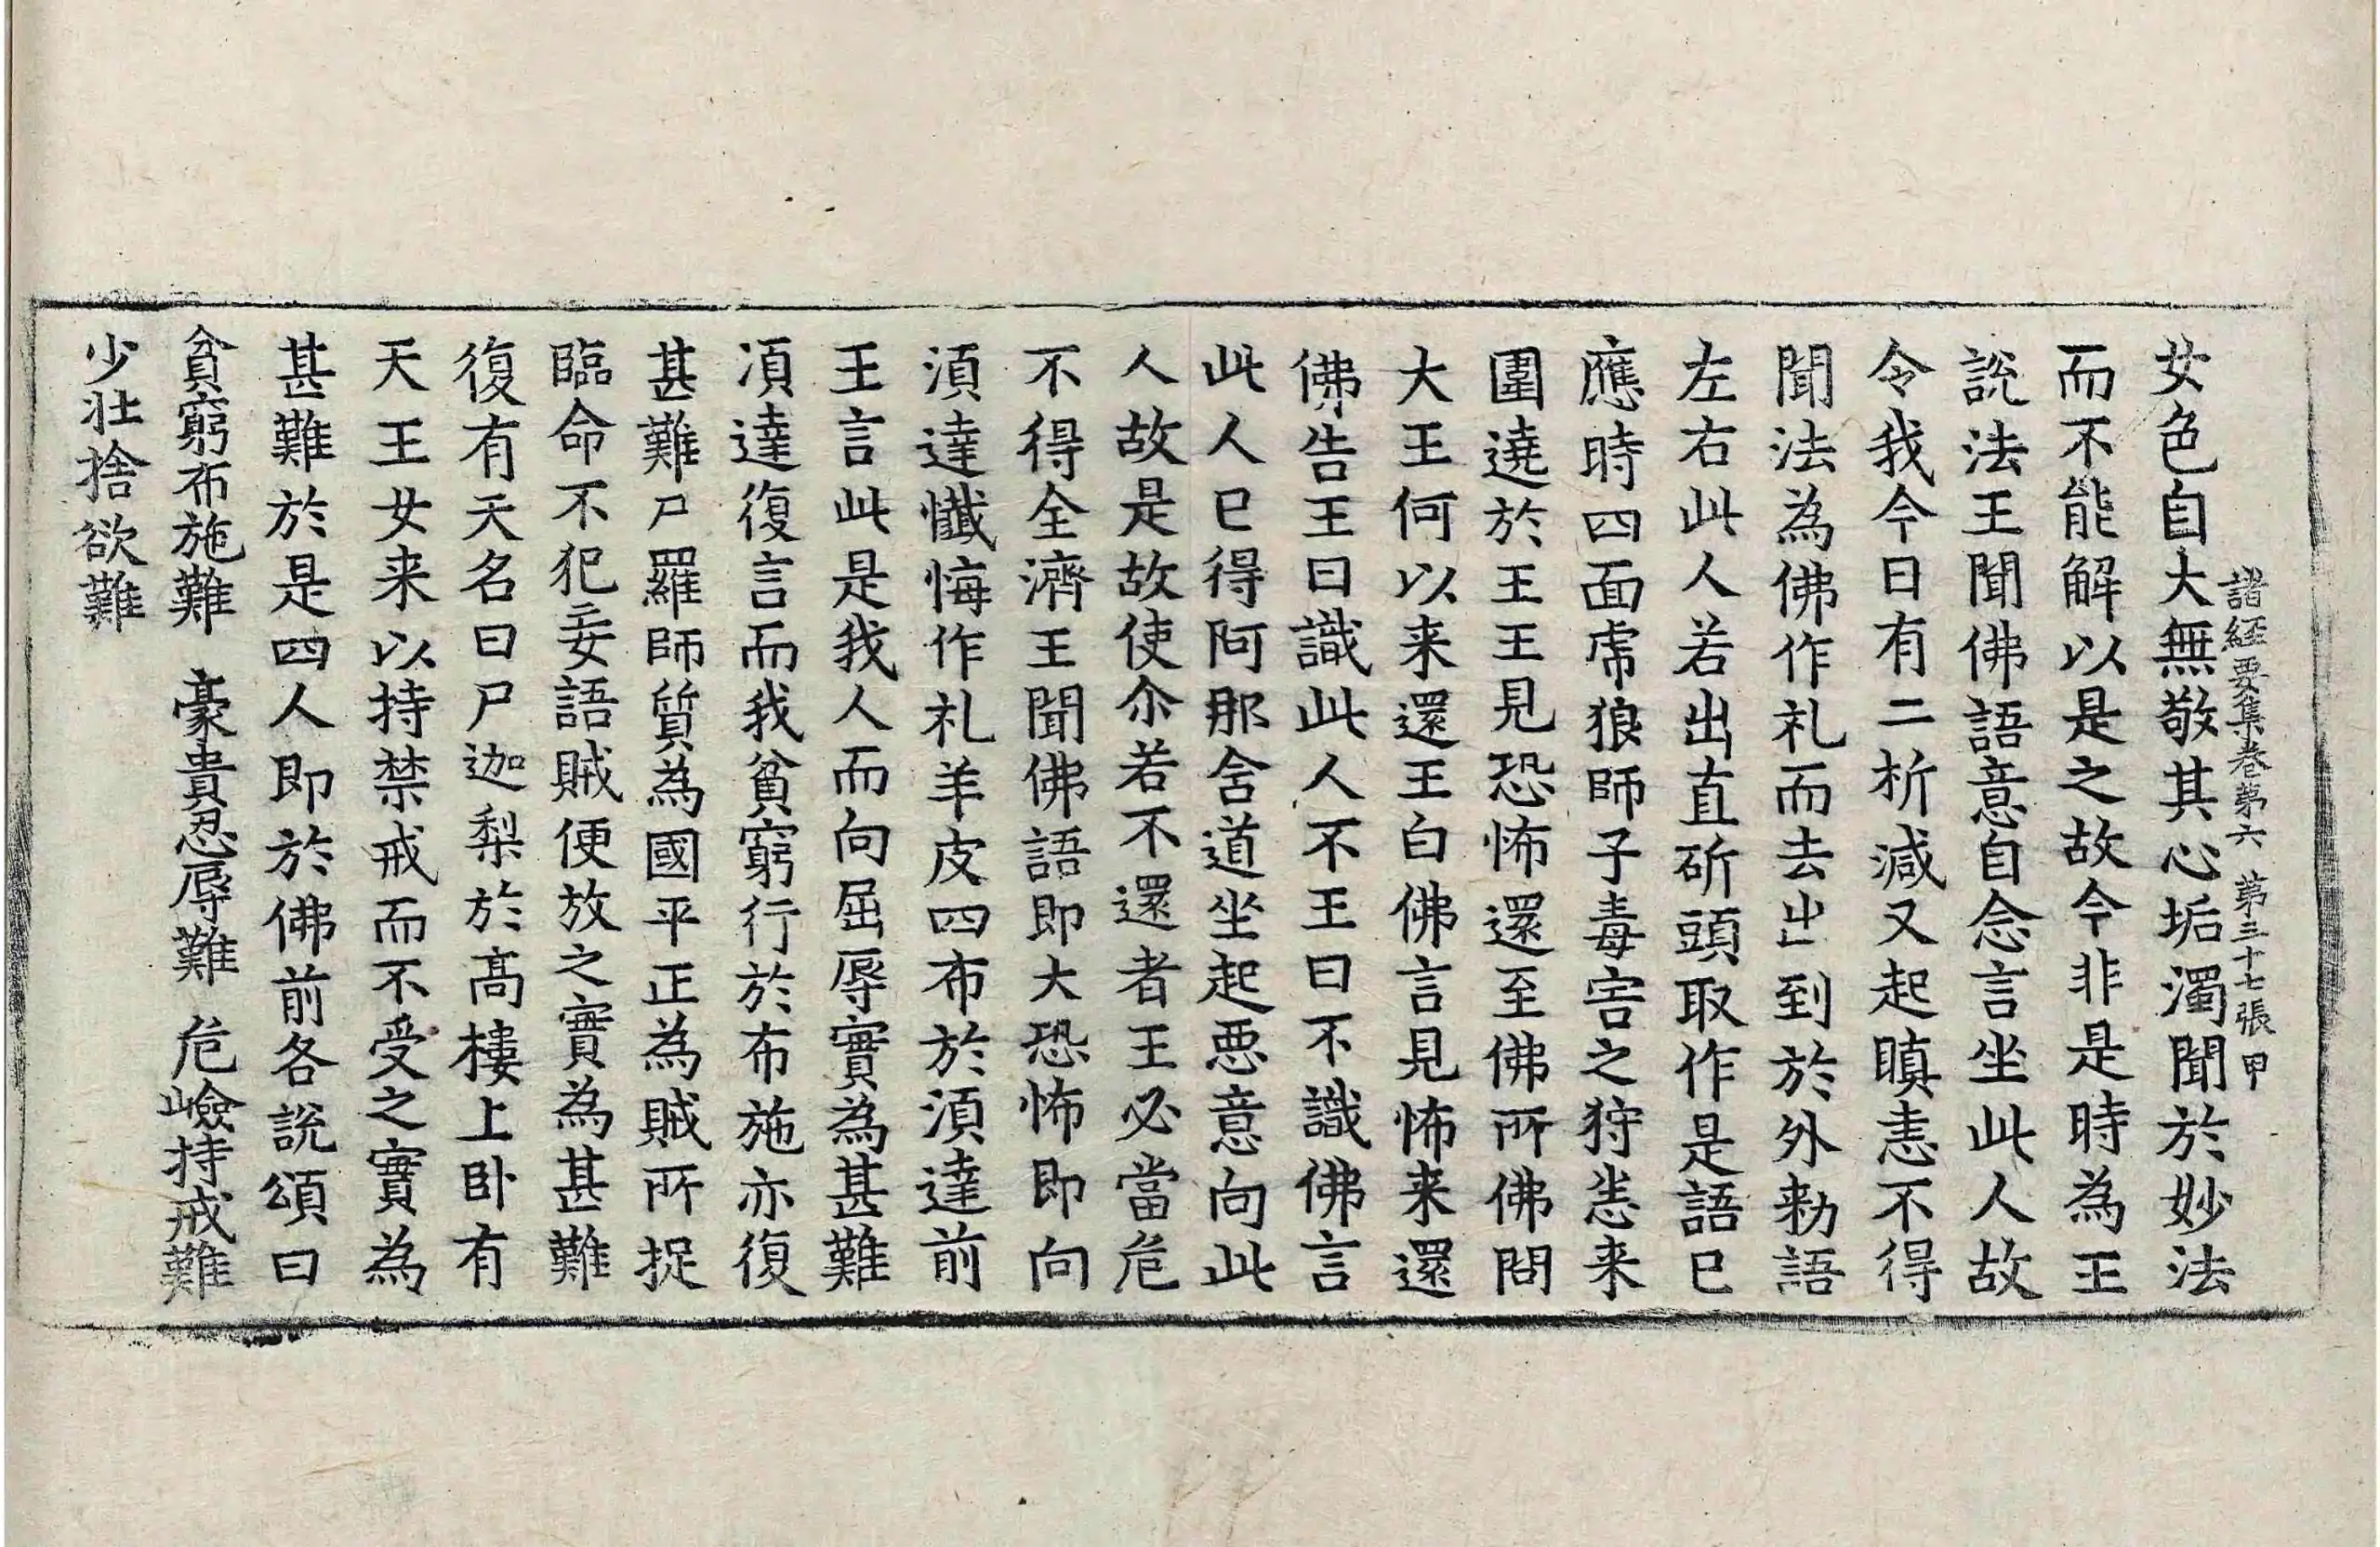 諸經要集卷第六 第三十七張 甲
女色自大無敬其心垢濁聞於妙法
而不能解以是之故今非是時為王
說法王聞佛語意自念言坐此人故
令我今日有二折減又起瞋恚不得
聞法為佛作礼而去出到於外勑語
左右此人若出直斫頭取作是語已
應時四面虎狼師子毒害之狩悉来
圍遶於王王見恐怖還至佛所佛問
大王何以来還王白佛言見怖来還
佛告王曰識此人不王曰不識佛言
此人已得阿那含道坐起惡意向此
人故是故使尒若不還者王必當危
不得全濟王聞佛語即大恐怖即向
湏達懺悔作礼羊皮四布於湏達前
王言此是我人而向屈辱實為甚難
湏達復言而我貧窮行於布施亦復
甚難尸羅師質為國平正為賊所捉
臨命不犯妄語賊便放之實為甚難
復有天名曰尸迦梨於髙樓上卧有
天王女来以持禁戒而不受之實為
甚難於是四人即於佛前各說頌曰
貧窮布施難 豪貴忍辱難 危嶮持戒難
少壯捨欲難